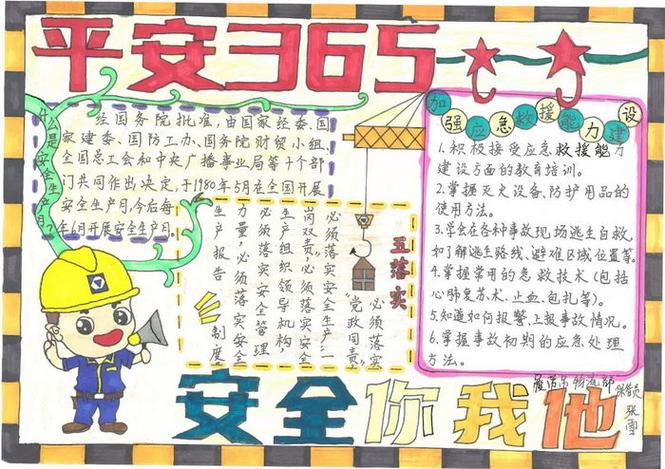 平安365
什么是安全生产月?
经国务院批准,由国家经委、国
家建委、国防工办、国务院财贸小组、
全国总工会和中央广播事业局等十个部
门共同作出决定,于1980年5月在全国开展
安全生产月,今后每
年6月开展安全生产月。
五落实
必须落实
“党政同责”
必须落实安全生产“一
岗双责”必须落实安全
生产组织领导机构,
必须落实安全管理
力量,必须落实安全
生产报告
制度
加强应急救援能力建设
1.积极接受应急救援能力
建设方面的教育培训。
2.掌握灭火设备、防护用品的
使用方法。
3.学会在各种事故现场逃生自救,
如了解逃生路线、避难区域位置等。
4.掌握常用的急救技术(包括
心肺复苏术、止血、包扎等)。
5.知道如何报警,上报事故情况。
6.掌握事故初判的应急处理
方法。
物流部
张雪
安全你我他